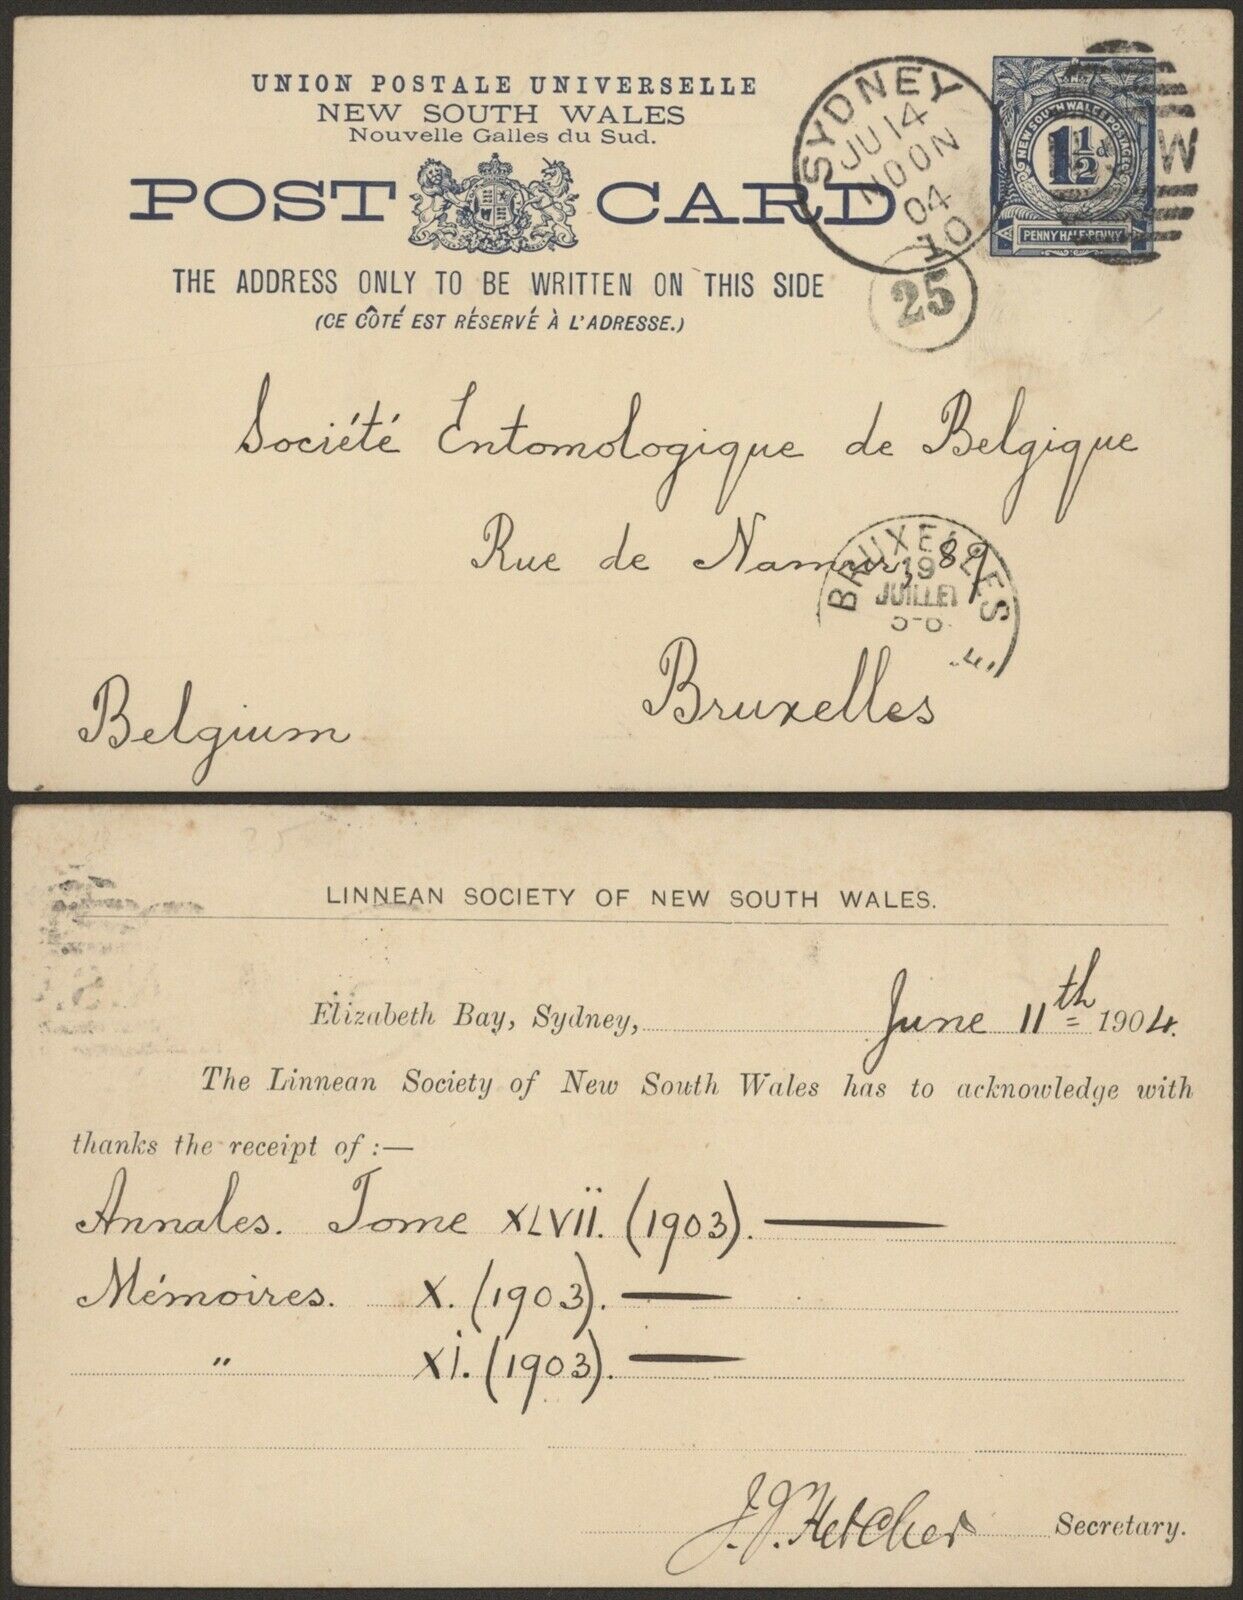 UNION POSTALE UNIVERSELLE
NEW SOUTH WALES
Nouvelle Galles du Sud.
POST CARD
THE ADDRESS ONLY TO BE WRITTEN ON THIS SIDE
(CE CÔTÉ EST RÉSERVÉ À L'ADRESSE.)
SYDNEY
JU 14
NOON
04
10
NEW SOUTH WALES POSTAGE
1½d
PENNY HALF-PENNY
W
25
Société Entomologique de Belgique
Rue de Namur, 89
BRUXELLES
19
JUILLET
Bruxelles
Belgium
LINNEAN SOCIETY OF NEW SOUTH WALES.
Elizabeth Bay, Sydney, June 11th 1904.
The Linnean Society of New South Wales has to acknowledge with
thanks the receipt of :—
Annales. Tome XLVii. (1903). —
Mémoires. X. (1903). —
" Xi. (1903). —
J. J. Fletcher Secretary.